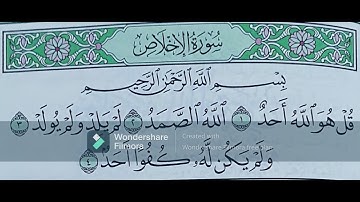 سُورَةُ الإِخْلَاصِ
بِسْمِ اللَّهِ الرَّحْمَٰنِ الرَّحِيمِ
قُلْ هُوَ اللَّهُ أَحَدٌ ١ اللَّهُ الصَّمَدُ ٢ لَمْ يَلِدْ وَلَمْ يُولَدْ ٣
Wondershare
Filmora
Created with
Wondershare
وَلَمْ يَكُن لَّهُ كُفُوًا أَحَدٌ ٤